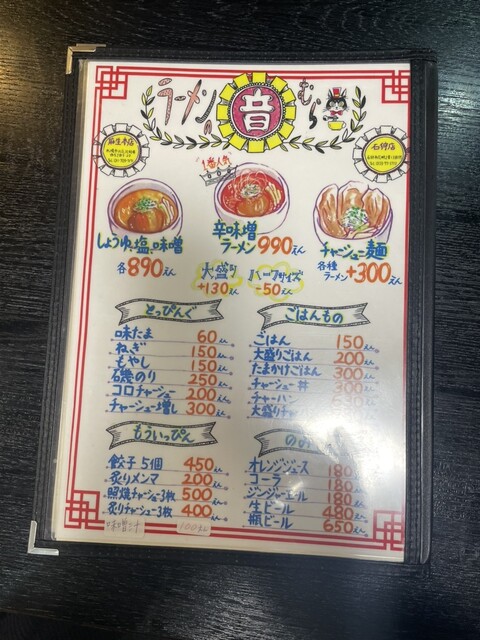 ラーメンの音むら
麻生本店
石狩店
1番人気
しょうゆ、塩、味噌
各890えん
辛味噌
ラーメン990えん
チャーシュー麺
各種ラーメン+300えん
大盛り
+130えん
ハーフサイズ
-50えん
とっぴんぐ
味たま 60えん
ねぎ 150えん
もやし 150えん
磯のり 250えん
コロチャーシュー 200えん
チャーシュー増し 300えん
ごはんもの
ごはん 150えん
大盛りごはん 200えん
たまかけごはん 300えん
チャーシュー丼 300えん
チャーハン
大盛りチャ
もういっぴん
餃子5個 450えん
炙りメンマ 200えん
照焼チャーシュー3枚 500えん
炙りチャーシュー3枚 400えん
味噌汁 100えん
のみ
オレンジジュース 180えん
コーラ 180えん
ジンジャーエール 180えん
生ビール 480えん
瓶ビール 650えん